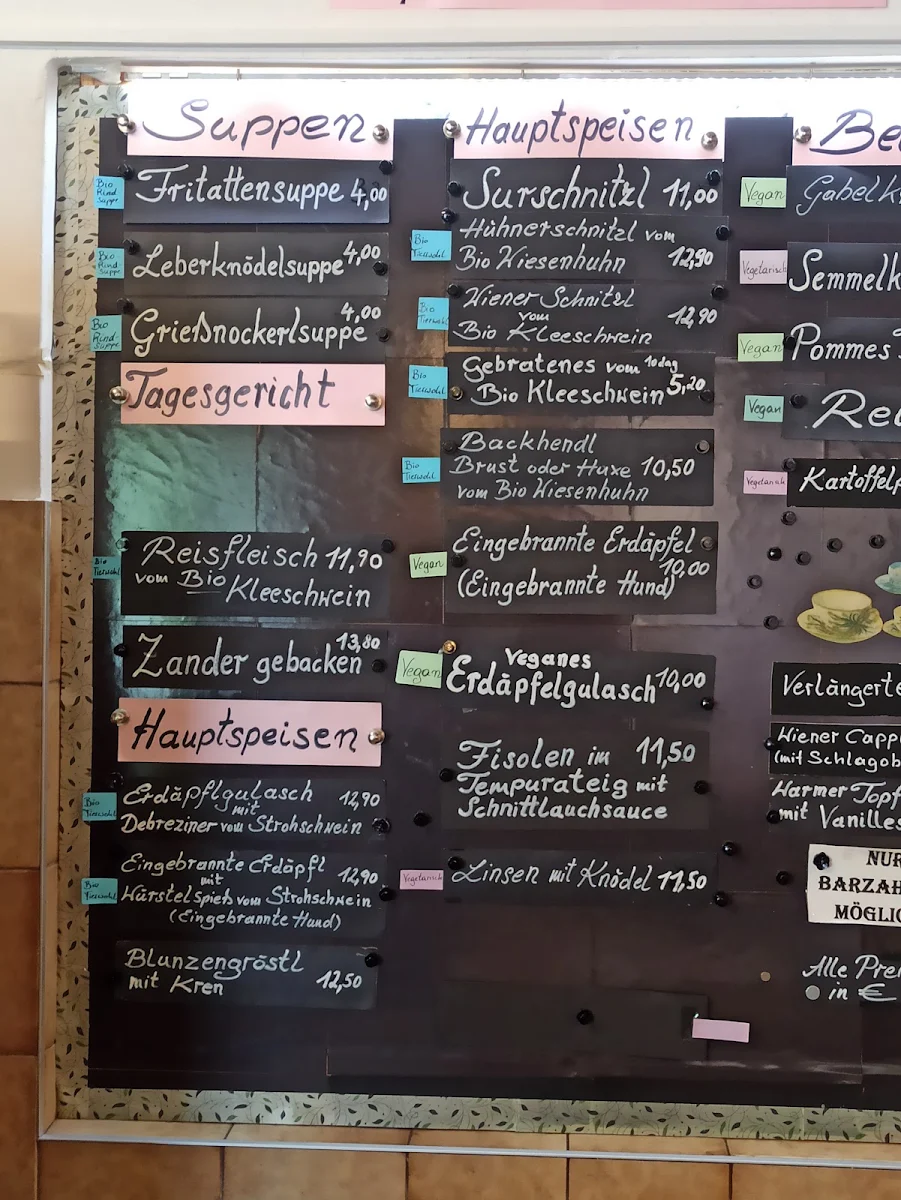 Suppen
Bio
Rind
Suppe
Fritattensuppe 4,00
Bio
Rind-
Suppe
Leberknödelsuppe 4,00
Bio
Rind-
Suppe
Grießnockerlsuppe 4,00
Tagesgericht
Bio
Tierwohl
Reisfleisch 11,90
vom Bio
Kleeschwein
Zander gebacken 13,80
Hauptspeisen
Bio
Tierwohl
Erdäpflgulasch 12,90
mit
Debreziner vom Strohschwein
Bio
Tierwohl
Eingebrannte Erdäpfl
mit 12,90
Würstelspieß vom Strohschwein
(Eingebrannte Hund)
Blunzengröstl
mit Kren 12,50
Hauptspeisen
Surschnitzl 11,00
Bio
Tierwohl
Hühnerschnitzl vom
Bio Wiesenhuhn 12,90
Bio
Tierwohl
Wiener Schnitzl
vom 12,90
Bio Kleeschwein
Bio
Tierwohl
Gebratenes vom 10dag
Bio Kleeschwein 5,20
Bio
Tierwohl
Backhendl
Brust oder Haxe 10,50
vom Bio Wiesenhuhn
Vegan
Eingebrannte Erdäpfel
10,00
(Eingebrannte Hund)
Vegan
Veganes
Erdäpfelgulasch 10,00
Fisolen im 11,50
Tempurateig mit
Schnittlauchsauce
Vegetarisch
Linsen mit Knödel 11,50
Be
Vegan
Gabelk
Vegetarisch
Semmelk
Vegan
Pommes
Vegan
Re
Vegetarisch
Kartoffel
Verlängerte
Wiener Capp
(mit Schlagob
Warmer Topf
mit Vanilles
NUR
BARZAH
MÖGLIC
Alle Prei
in €